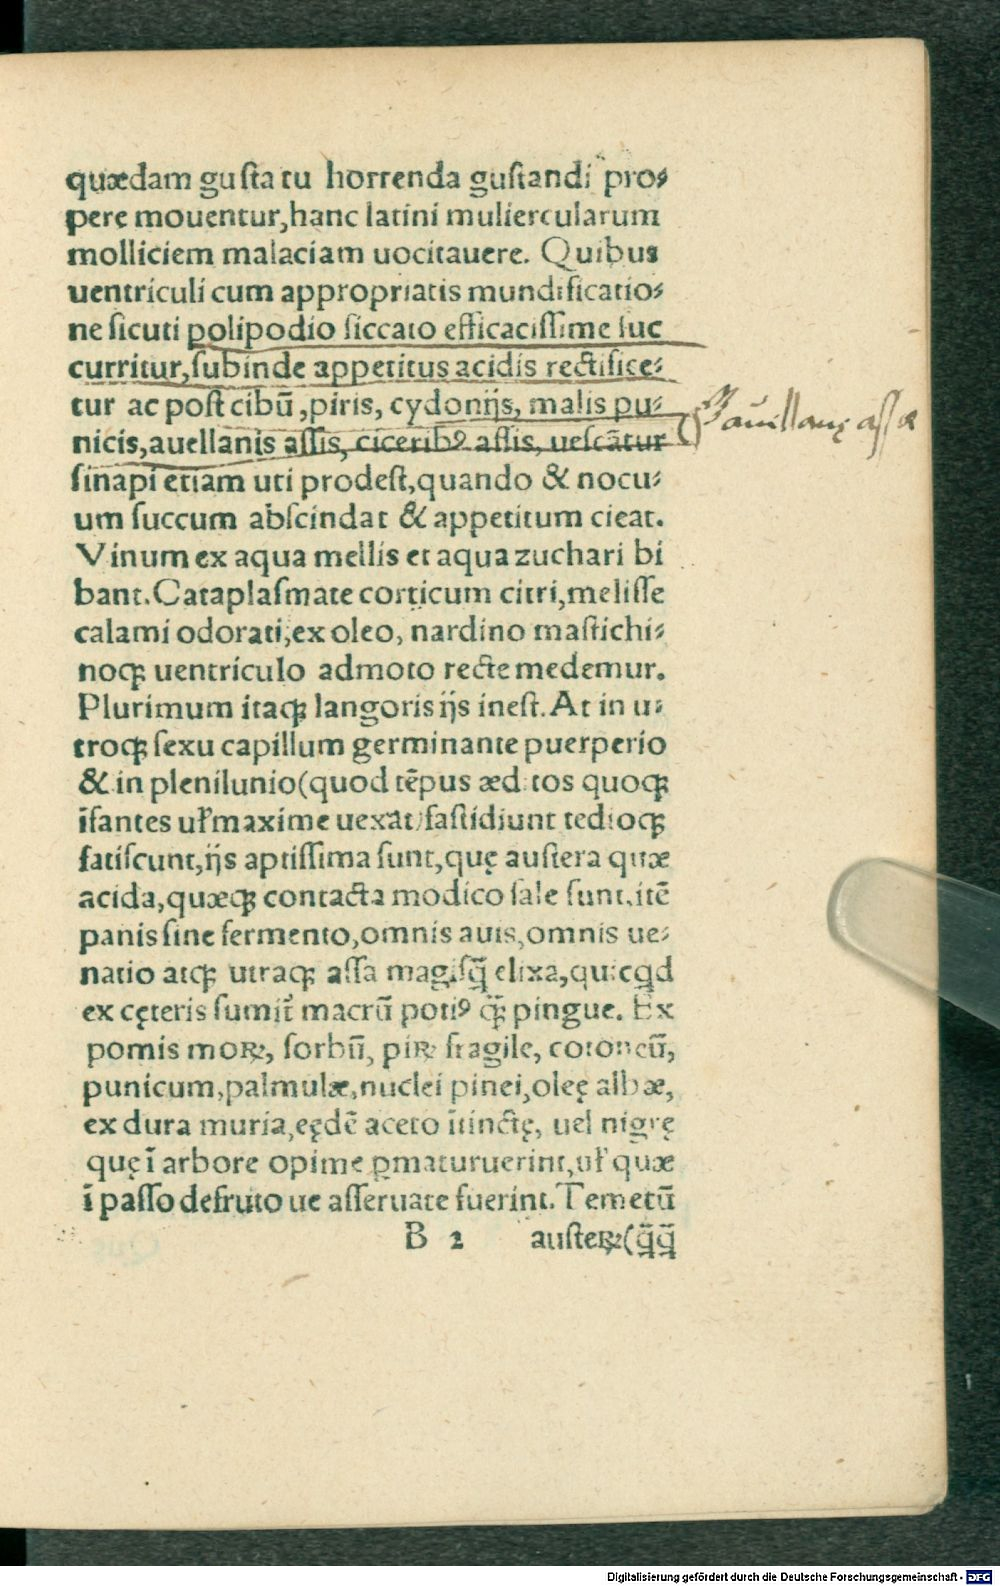 quædam gustatu horrenda gustandi pro⸗
pere mouentur,hanc latini muliercularum
molliciem malaciam uocitauere. Quibus
uentriculi cum appropriatis mundificatio⸗
ne sicuti polipodio siccato efficacissime suc
curritur,subinde appetitus acidis rectifice⸗
tur ac post cibū,piris, cydonijs, malis pu⸗
nicis,auellanis assis, ciceribꝰ assis, uescātur
sinapi etiam uti prodest,quando & nocu⸗
um succum abscindat & appetitum cieat.
Vinum ex aqua mellis et aqua zuchari bi
bant.Cataplasmate corticum citri,melisse
calami odorati,ex oleo, nardino mastichi⸗
noqꝫ uentriculo admoto recte medemur.
Plurimum itaqꝫ langoris ijs inest.At in u⸗
troqꝫ sexu capillum germinante puerperio
& in plenilunio(quod tēpus æd tos quoqꝫ
īfantes uł maxime uexāt)fastidiunt tedioqꝫ
fatiscunt,ijs aptissima sunt,quę austera quæ
acida,quæqꝫ contacta modico sale sunt,itē
panis sine fermento,omnis auis,omnis ue⸗
natio atqꝫ utraqꝫ assa magisq̄ elixa,quicqd
ex cęteris sumit̄ macrū potiꝰ q̄ pingue. Ex
pomis moꝝ, sorbū, piꝝ fragile, cotoneū,
punicum,palmulæ,nuclei pinei,oleę albæ,
ex dura muria,eędē aceto ītinctę, uel nigrę
quę ī arbore opime ꝑmaturuerint,uł quæ
ī passo defruto ue asseruate fuerint.Temetū
B 2 austeꝝ(q̄q̄
auillanę assæ
Digitalisierung gefördert durch die Deutsche Forschungsgemeinschaft - DFG